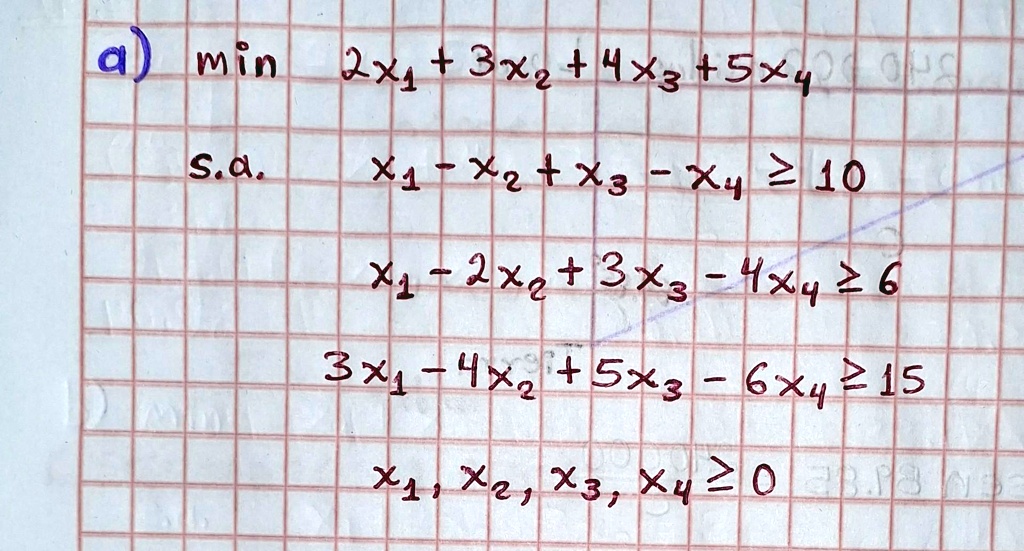 a) min 2x₁ + 3x₂ + 4x₃ + 5x₄
s.a. x₁ - x₂ + x₃ - x₄ ≥ 10
x₁ - 2x₂ + 3x₃ - 4x₄ ≥ 6
3x₁ - 4x₂ + 5x₃ - 6x₄ ≥ 15
x₁, x₂, x₃, x₄ ≥ 0